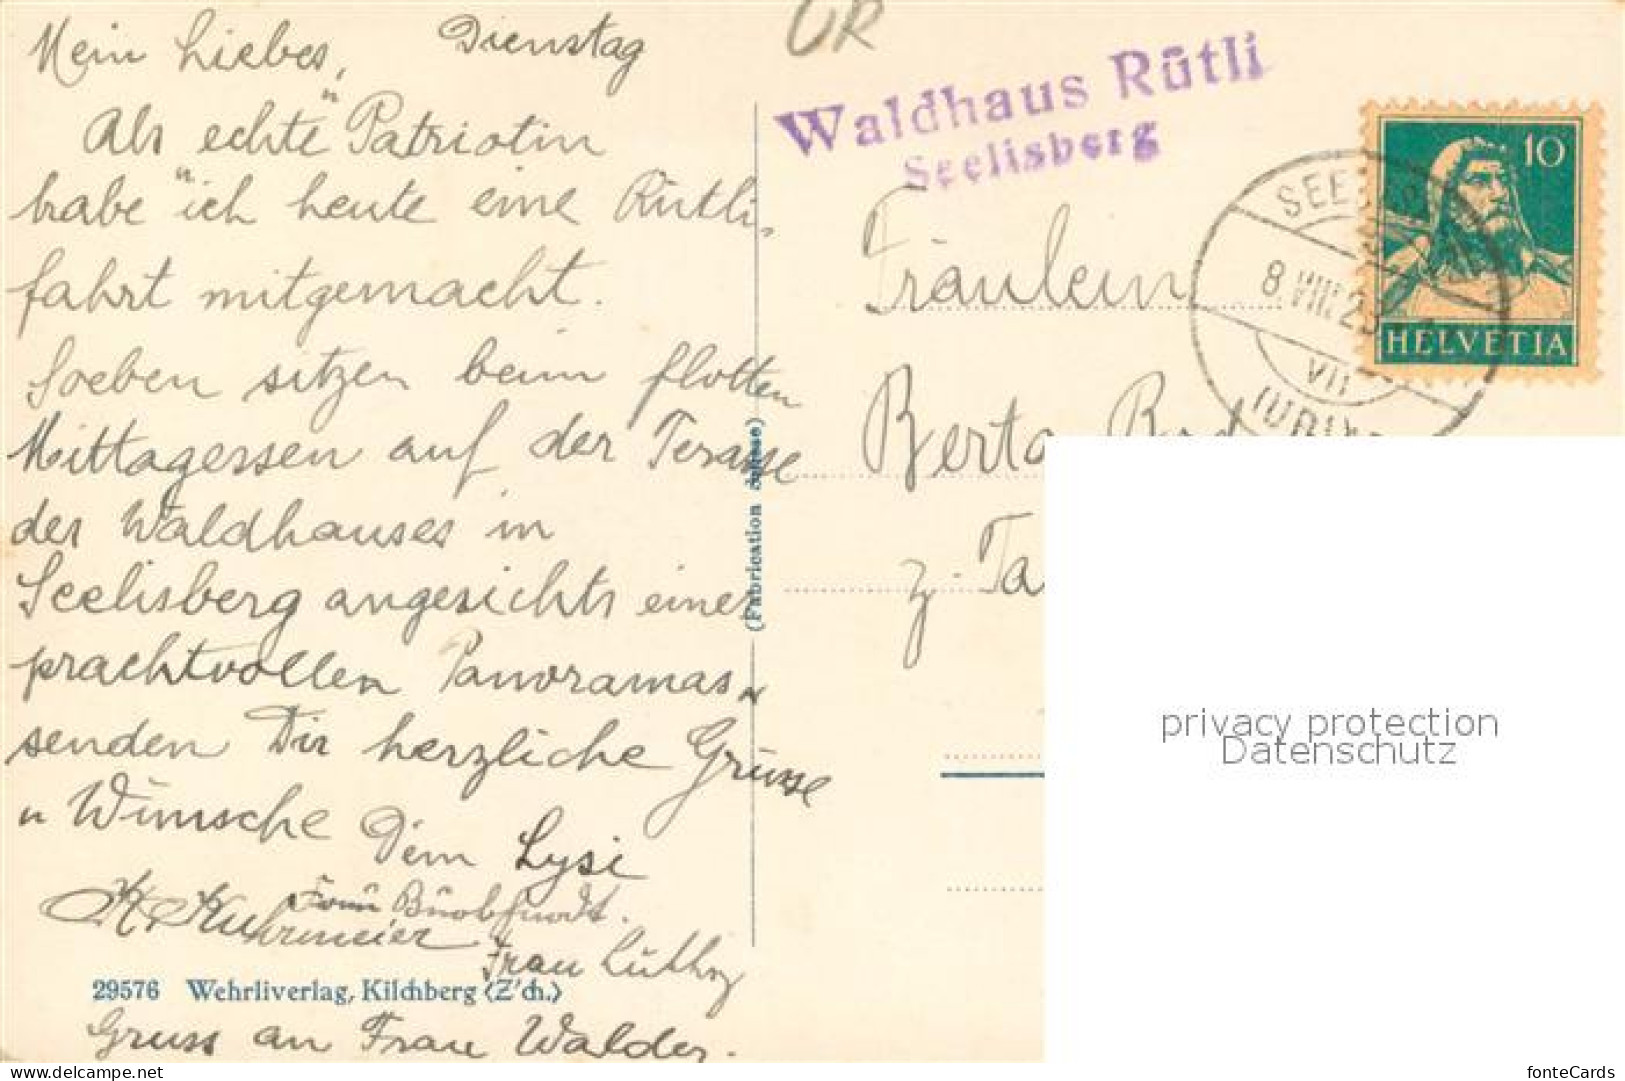 Mein Liebes, Dienstag
Als echte "Patriotin
habe "ich heute eine Rütli-
fahrt mitgemacht.
Soeben sitzen beim flotten
Mittagessen auf der Terasse
des Waldhauses in
Seelisberg angesichts eines
prachtvollen Panoramas u
senden Dir herzliche Grüsse
u Wünsche Dein Lysi
Frau
K. Kuhrmeier
Frau Lüthy
29576 Wehrliverlag, Kilchberg (Z'ch.)
Gruss an Frau Walder.
(Fabrication suisse)
OR
Waldhaus Rütli
Seelisberg
10
HELVETIA
8.VIII.2
VII
Fräulein
Berta
z. Ta
privacy protection
Datenschutz
delcampe.net
fonteCards